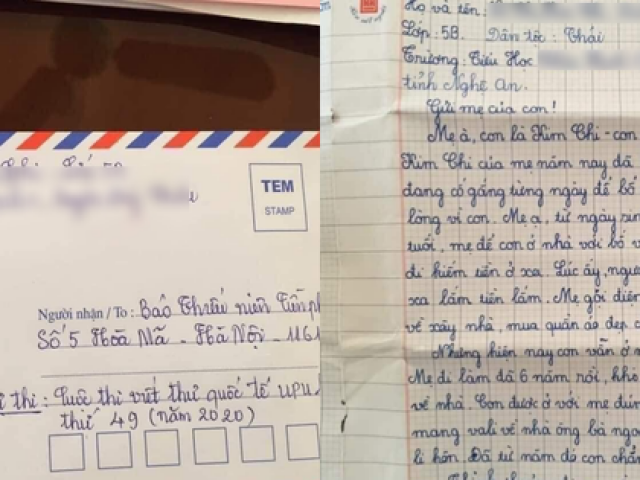 TEM
STAMP
Người nhận / To: Báo Thiếu niên Tiền
Số 5 Hoà Mã - Hà Nội - 116
thi: Cuộc thi viết thư quốc tế UPU
thứ 49 (năm 2020)
Họ và tên:
Lớp: 5B. Dân tộc: Thái
Trường: Tiểu Học
tỉnh Nghệ An.
Gửi mẹ của con!
Mẹ à, con là Kim Chi - con
Kim Chi của mẹ năm nay đã
đang cố gắng từng ngày để bố
lòng vì con. Mẹ ạ, từ ngày
tuổi, mẹ để con ở nhà với bố
đi kiếm tiền ở xa. Lúc ấy,
xa lắm tiền lắm. Mẹ gửi
về xây nhà, mua quần áo đẹp
Nhưng hiện nay con vẫn ở
Mẹ đi làm đã 6 năm rồi,
về nhà. Con được ở với mẹ
mang vali về nhà ông bà
li hôn. Đã từ năm đó con